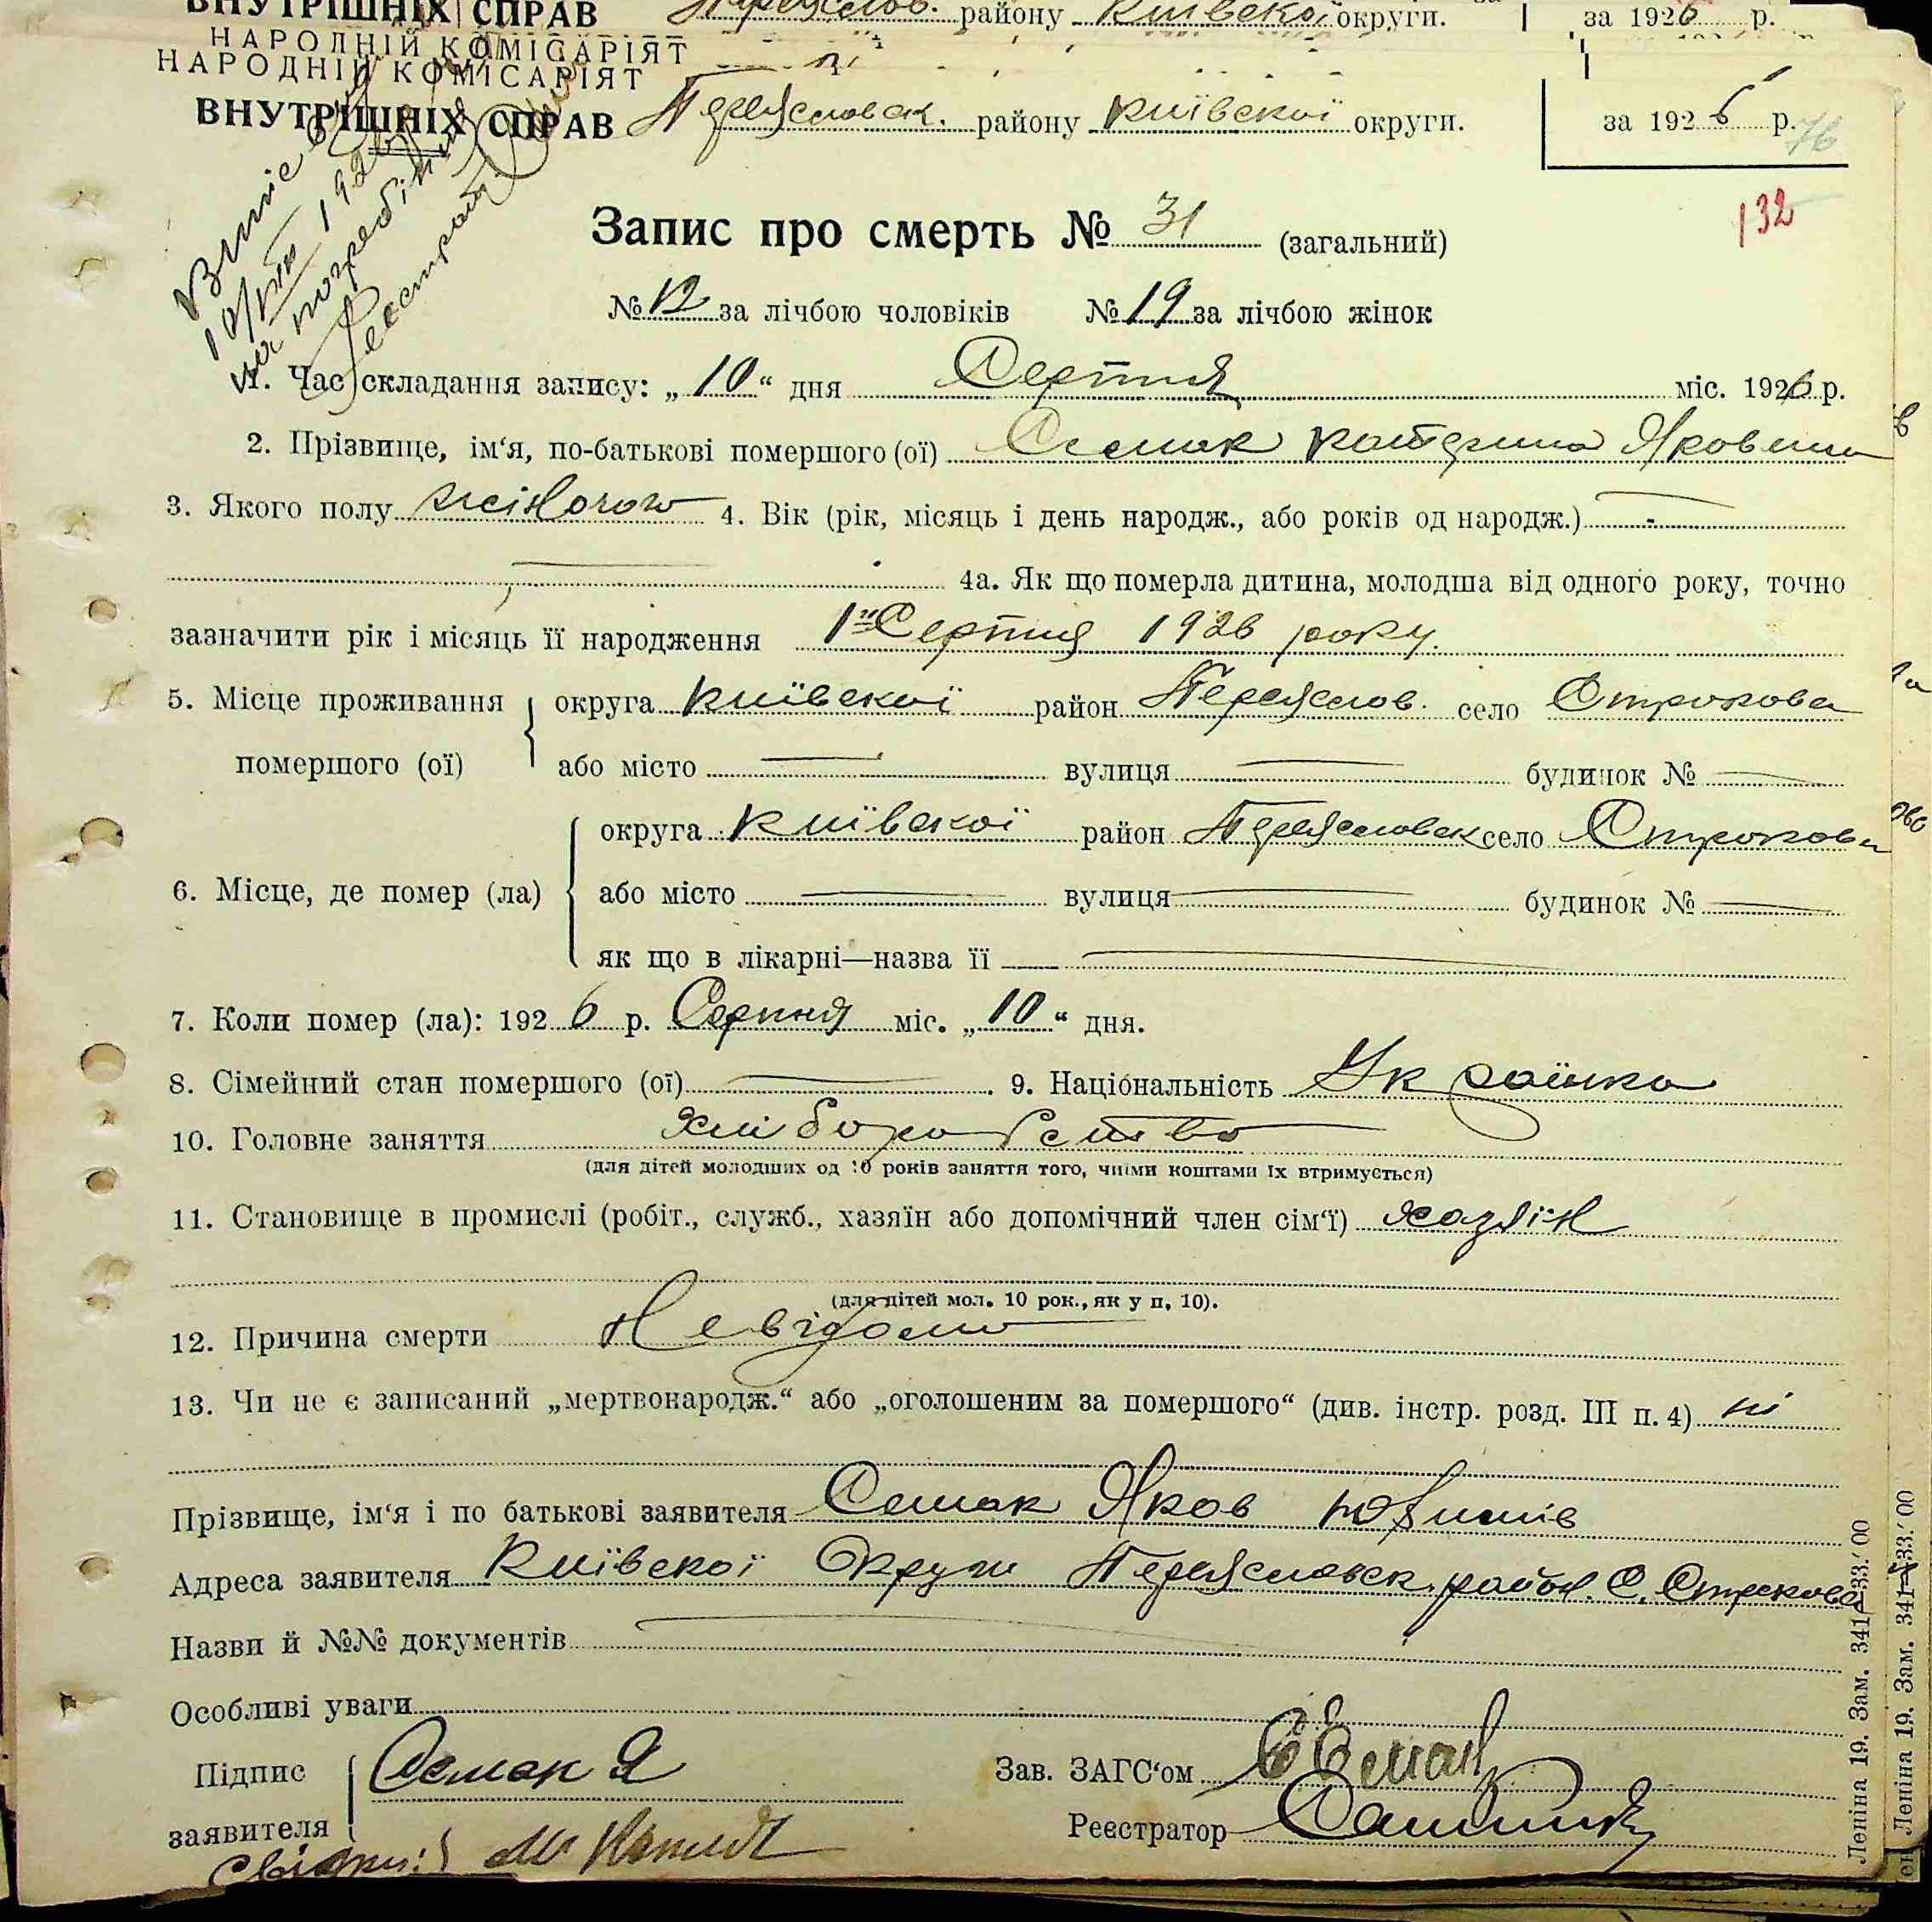 ВНУТРІШНІХ СПРАВ Переяслов. району Київської округи. за 1926 р.
НАРОДНІЙ КОМІСАРІЯТ
НАРОДНІЙ КОМІСАРІЯТ
ВНУТРІШНІХ СПРАВ Переясловск. району Київської округи. за 1926 р.
76
132
Запис про смерть № 31 (загальний)
№ 12 за лічбою чоловіків № 19 за лічбою жінок
1. Час складання запису: „10“ дня Серпня міс. 1926 р.
2. Прізвище, ім‘я, по-батькові помершого (ої) Семак Катерина Яковина
3. Якого полу жіночого 4. Вік (рік, місяць і день народж., або років од народж.) —
— 4а. Як що померла дитина, молодша від одного року, точно
зазначити рік і місяць її народження 1го Серпня 1926 року.
5. Місце проживання округа Київської район Переяслов. село Строкова
помершого (ої) або місто — вулиця — будинок № —
округа Київської район Переясловск село Строкова
6. Місце, де помер (ла) або місто — вулиця — будинок № —
як що в лікарні—назва її —
7. Коли помер (ла): 1926 р. Серпня міс. „10“ дня.
8. Сімейний стан помершого (ої) — . 9. Національність Українка
10. Головне заняття хліборобство
(для дітей молодших од 10 років заняття того, чиїми коштами їх втримується)
11. Становище в промислі (робіт., служб., хазяїн або допомічний член сім‘ї) хазяїн
(для дітей мол. 10 рок., як у п. 10).
12. Причина смерти Невідомо
13. Чи не є записаний „мертвонародж.“ або „оголошеним за помершого“ (див. інстр. розд. III п. 4) ні
Прізвище, ім‘я і по батькові заявителя Семак Яков
Адреса заявителя Київської Округи Переясловск. район. С. Строкова
Назви й №№ документів —
Особливі уваги
Підпис Семак Я Зав. ЗАГС‘ом
заявителя Реєстратор
Свідки:
Леніна 19. Зам. 341—33.′00
Леніна 19. Зам. 341—33.′00